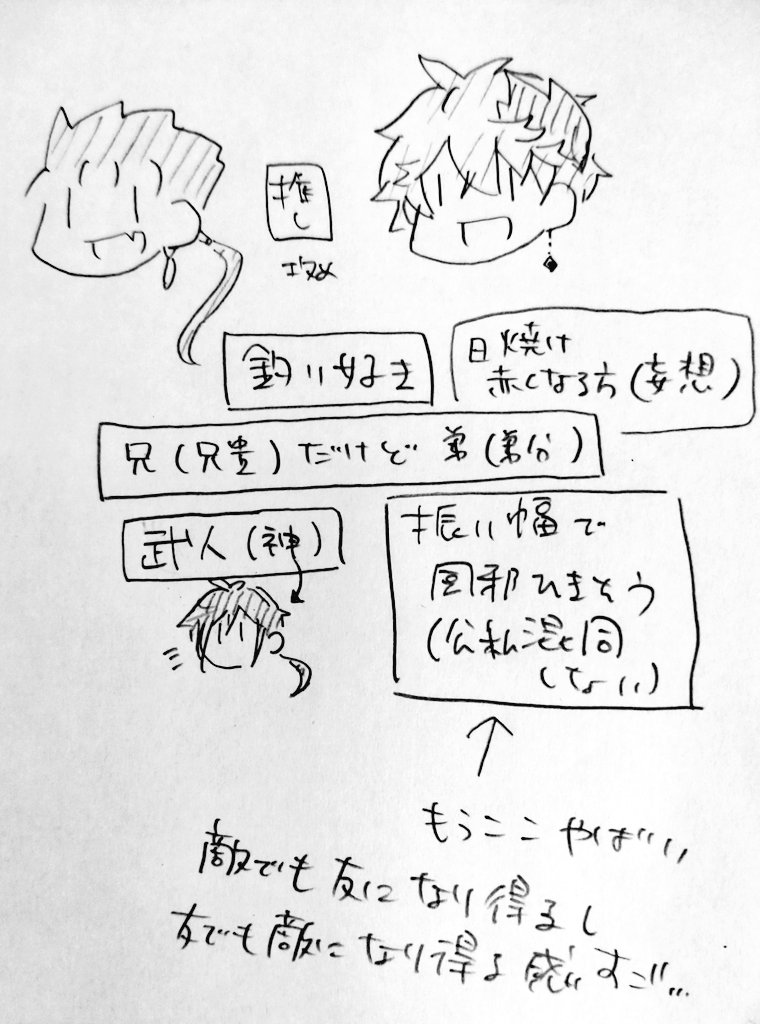 推し
攻め
釣り好き
日焼け
赤くなる方(妄想)
兄(兄貴)だけど弟(弟分)
武人(神)
振り幅で
風邪ひきそう
(公私混同
しない)
もうここやばい
敵でも友になり得るし
友でも敵になり得る感じすご…